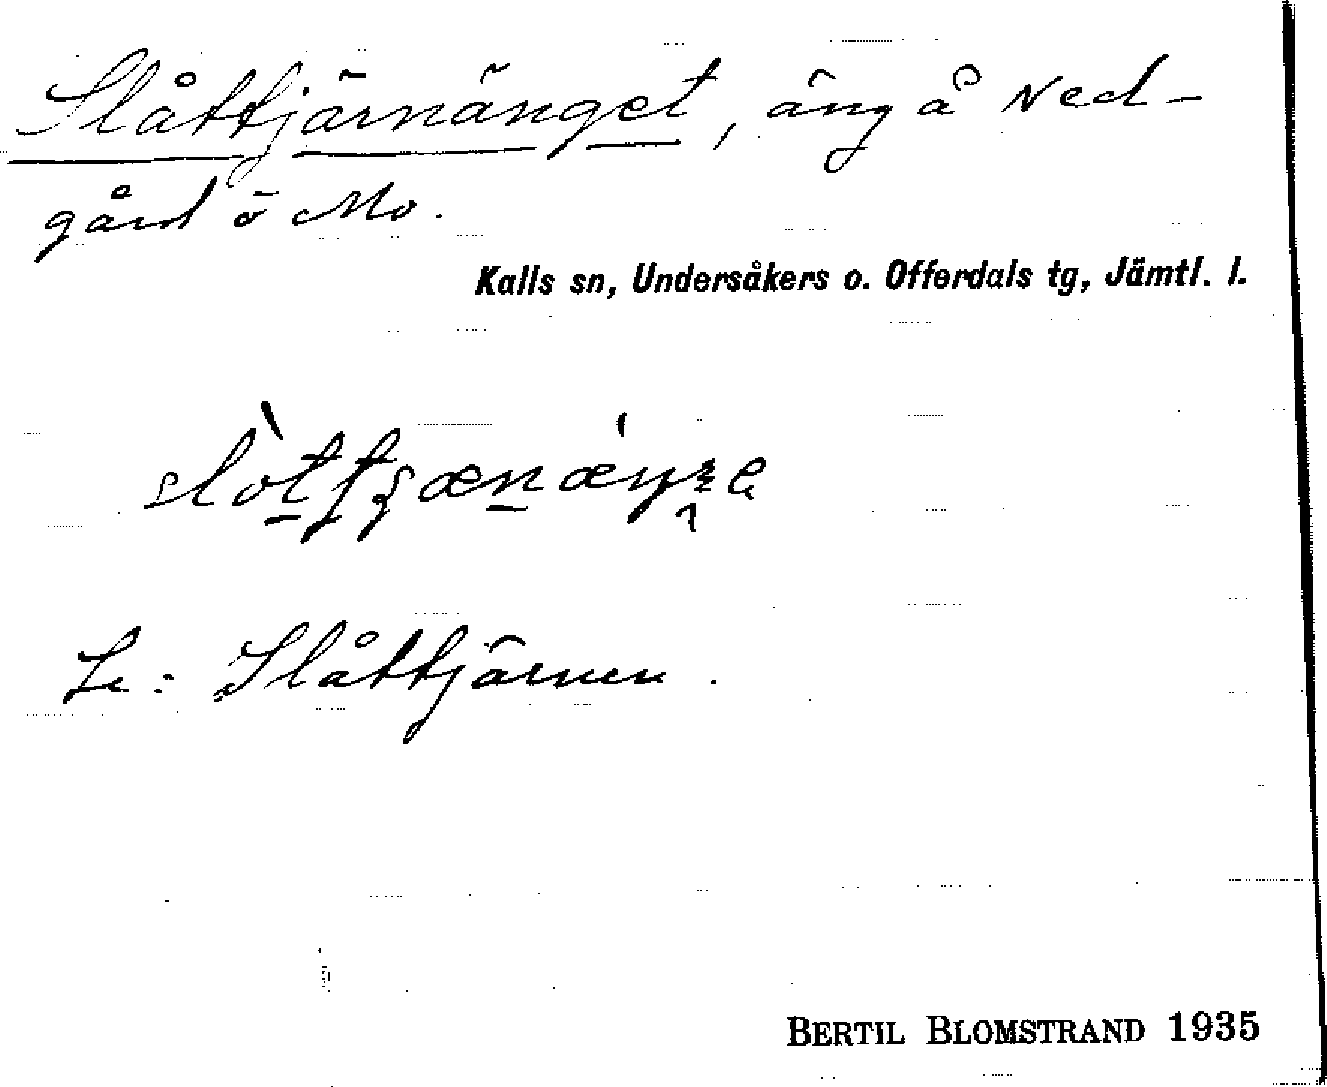 Slåttjärnänget, äng å Ned-
gård ö Mo.
Kalls sn, Undersåkers o. Offerdals tg, Jämtl. l.
Se: Slåttjärnen.
BERTIL BLOMSTRAND 1935